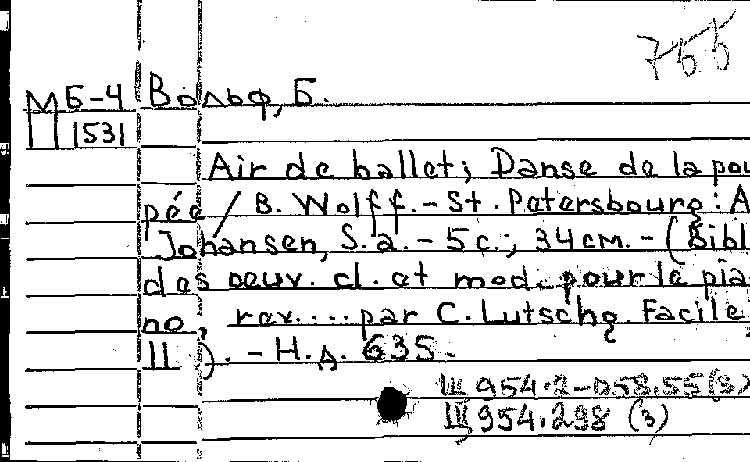 755
М Б-4 Вольф, Б.
1531
Air de ballet; Danse de la pou
pée / B. Wolff. - St. Petersbourg: A
Johansen, S.a. - 5 с.; 34 см. - (Bibl
des oeuv. cl. et mod. pour le pia
no, rev.... par C. Lutschg. Facile
II). - Н.д. 635.
III 954.2-058.55(3)
III 954.298 (3)